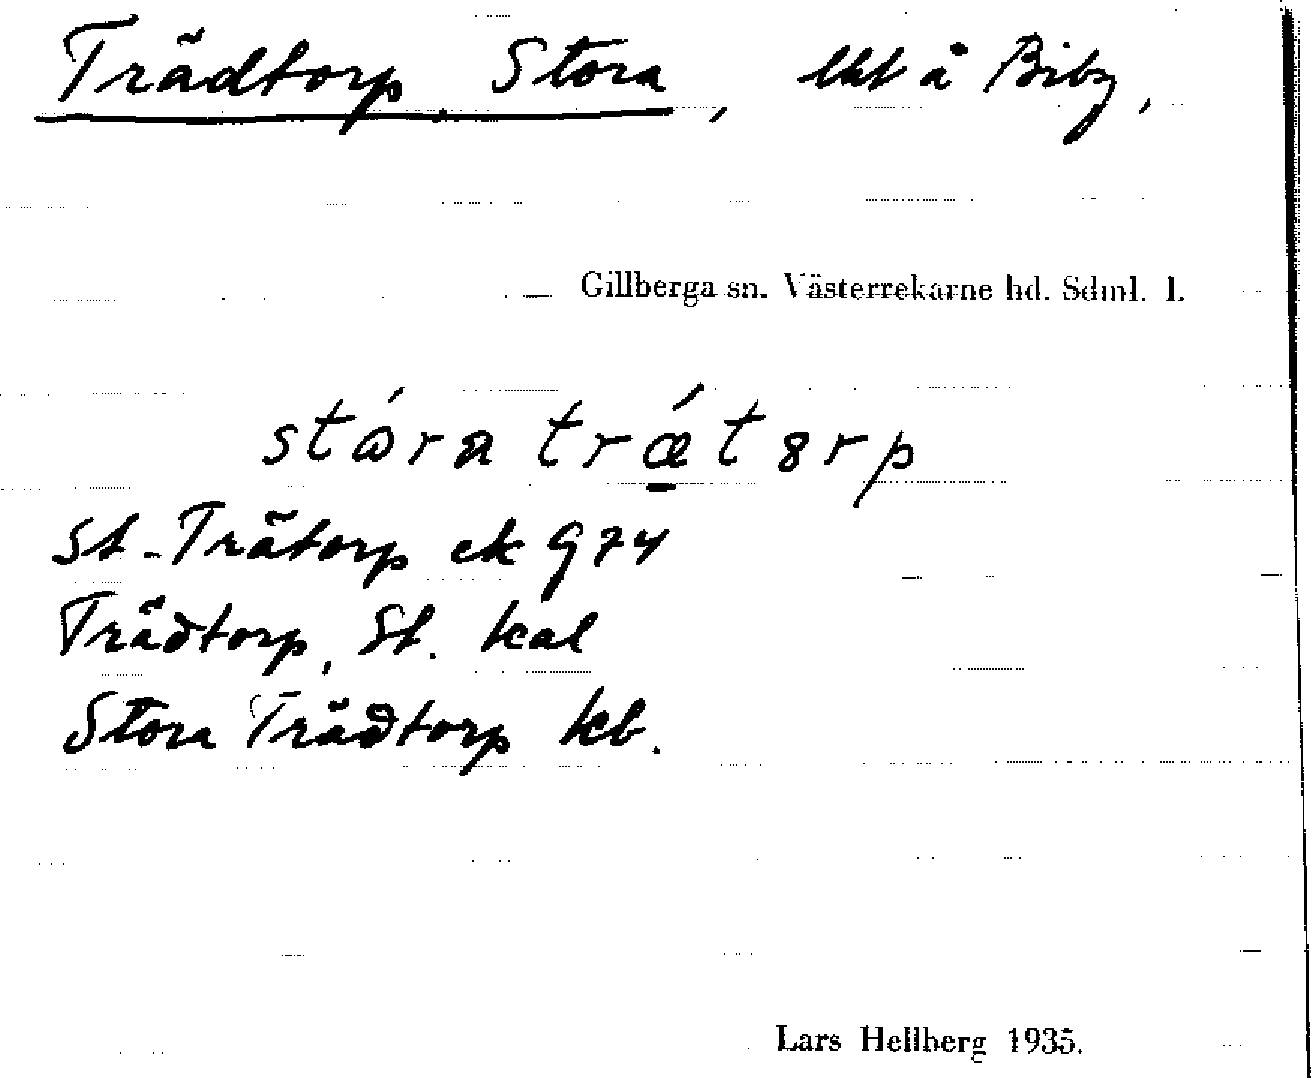 Trädtorp, Stora, lht å Biby,
Gillberga sn. Västerrekarne hd. Sdml. l.
stóra trǽtorp
St. Trätorp ek G 74
Trädtorp, St. kal
Stora Trädtorp kb.
Lars Hellberg 1935.